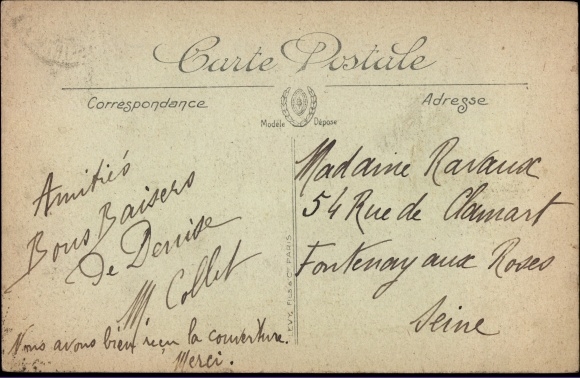 Carte Postale
Correspondance
Adresse
Modèle Déposé
Amitiés
Bons Baisers
de Denise
M Collet
Nous avons bien reçu la couverture.
Merci.
LEVY FILS & Cie PARIS
Madame Ravaux
54 Rue de Clamart
Fontenay aux Roses
Seine